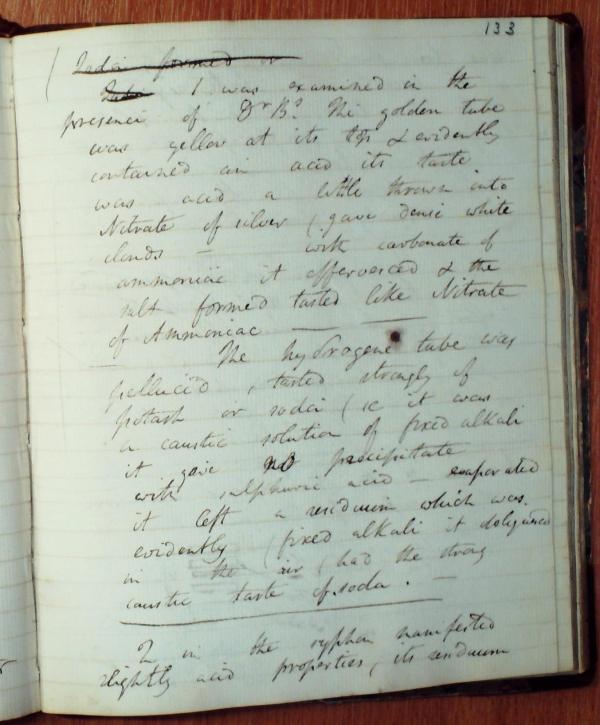 133
Soda formed or
Soda 1 was examined in the
presence of Dr B? The golden tube
was yellow at its top & evidently
contained an acid its taste
was acid a little thrown into
Nitrate of silver (gave dense white
clouds — with carbonate of
ammoniac it effervesced & the
salt formed tasted like Nitrate
of Ammoniac —
The hydrogene tube was
pellucid, tasted strongly of
potash or soda (ie it was
a caustic solution of fixed alkali
it gave no precipitate
with sulphuric acid — evaporated
it left a residuum which was
evidently (fixed alkali it deliquesced
in the air (had the strong
caustic taste of soda. —
2 in the syphon manifested
slightly acid properties, its residuum